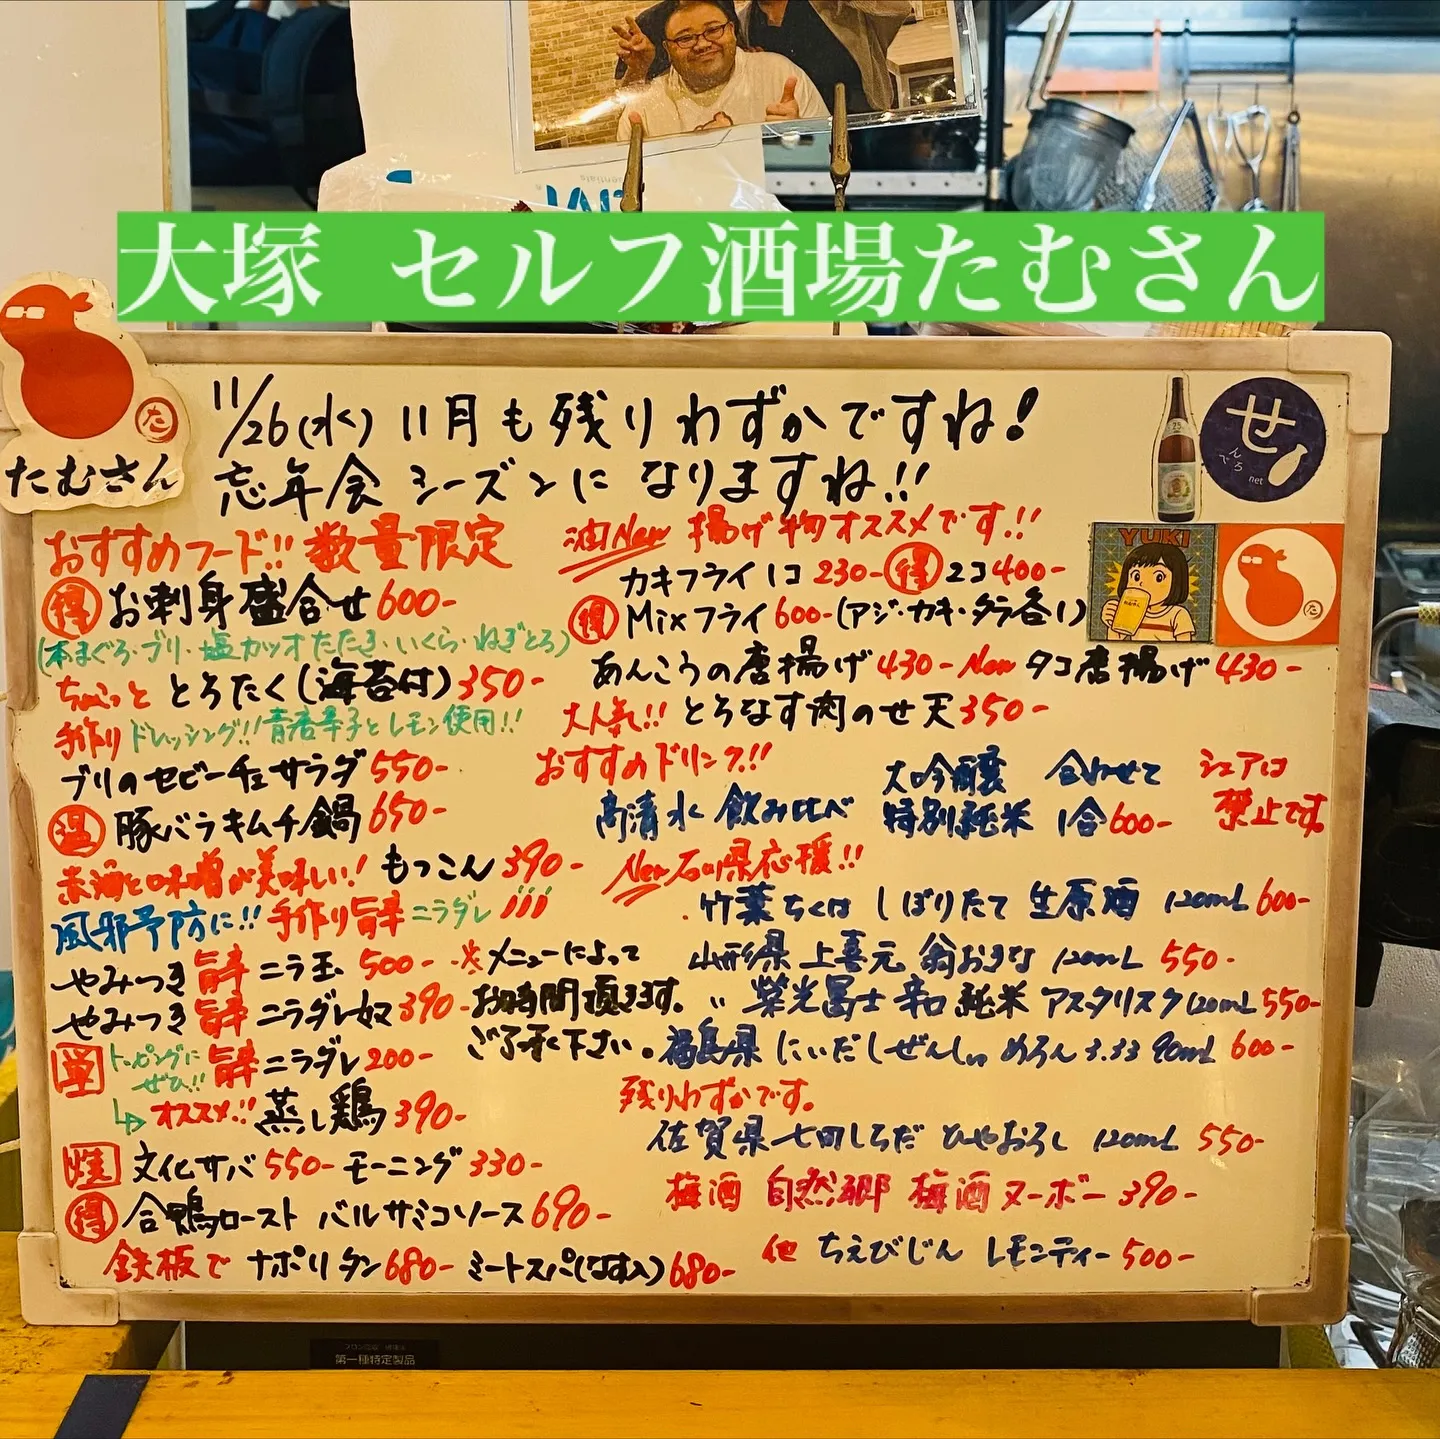 大塚 セルフ酒場たむさん
たむさん
11/26(水) 11月も残りわずかですね!
忘年会シーズンになりますね!!
せ
でんろ
net
YUKI
おすすめフード!! 数量限定
得 お刺身盛合せ 600-
(本まぐろ・ブリ・塩カツオたたき・いくら・ねぎとろ)
ちょこっと とろたく(海苔付) 350-
手作りドレッシング!!青唐辛子とレモン使用!!
ブリのセビーチェサラダ 550-
温 豚バラキムチ鍋 650-
赤酒と味噌が美味しい! もつこん 390-
風邪予防に!! 手作り旨辛ニラダレ
やみつき 旨辛 ニラ玉 500-
やみつき 旨辛 ニラダレ奴 390-
単 トッピングにぜひ!! 旨辛 ニラダレ 200-
オススメ!! 蒸し鶏 390-
※メニューによって
お時間頂きます。
ご了承下さい。
焼 文化サバ 550- モーニング 330-
得 合鴨ロースト バルサミコソース 690-
鉄板で ナポリタン 680- ミートスパ(なす入) 680-
油 New 揚げ物オススメです!!
カキフライ 1コ 230- 得 2コ 400-
得 Mixフライ 600- (アジ・カキ・タラ各1)
あんこうの唐揚げ 430- New タコ唐揚げ 430-
大人気!! とろなす肉のせ天 350-
おすすめドリンク!!
高清水 飲み比べ 大吟醸 特別純米 合わせて 1合 600- シェアは禁止です。
New 石川県応援!!
竹葉 ちくは しぼりたて 生原酒 120mL 600-
山形県 上喜元 翁おきな 120mL 550-
〃 栄光冨士 辛口 純米 アスタリスク 120mL 550-
福島県 にいだしぜんしゅ めろん3.33 90mL 600-
残りわずかです。
佐賀県 七田しちだ ひやおろし 120mL 550-
梅酒 自然郷 梅酒ヌーボー 390-
他 ちえびじん レモンティー 500-
第一種特定製品